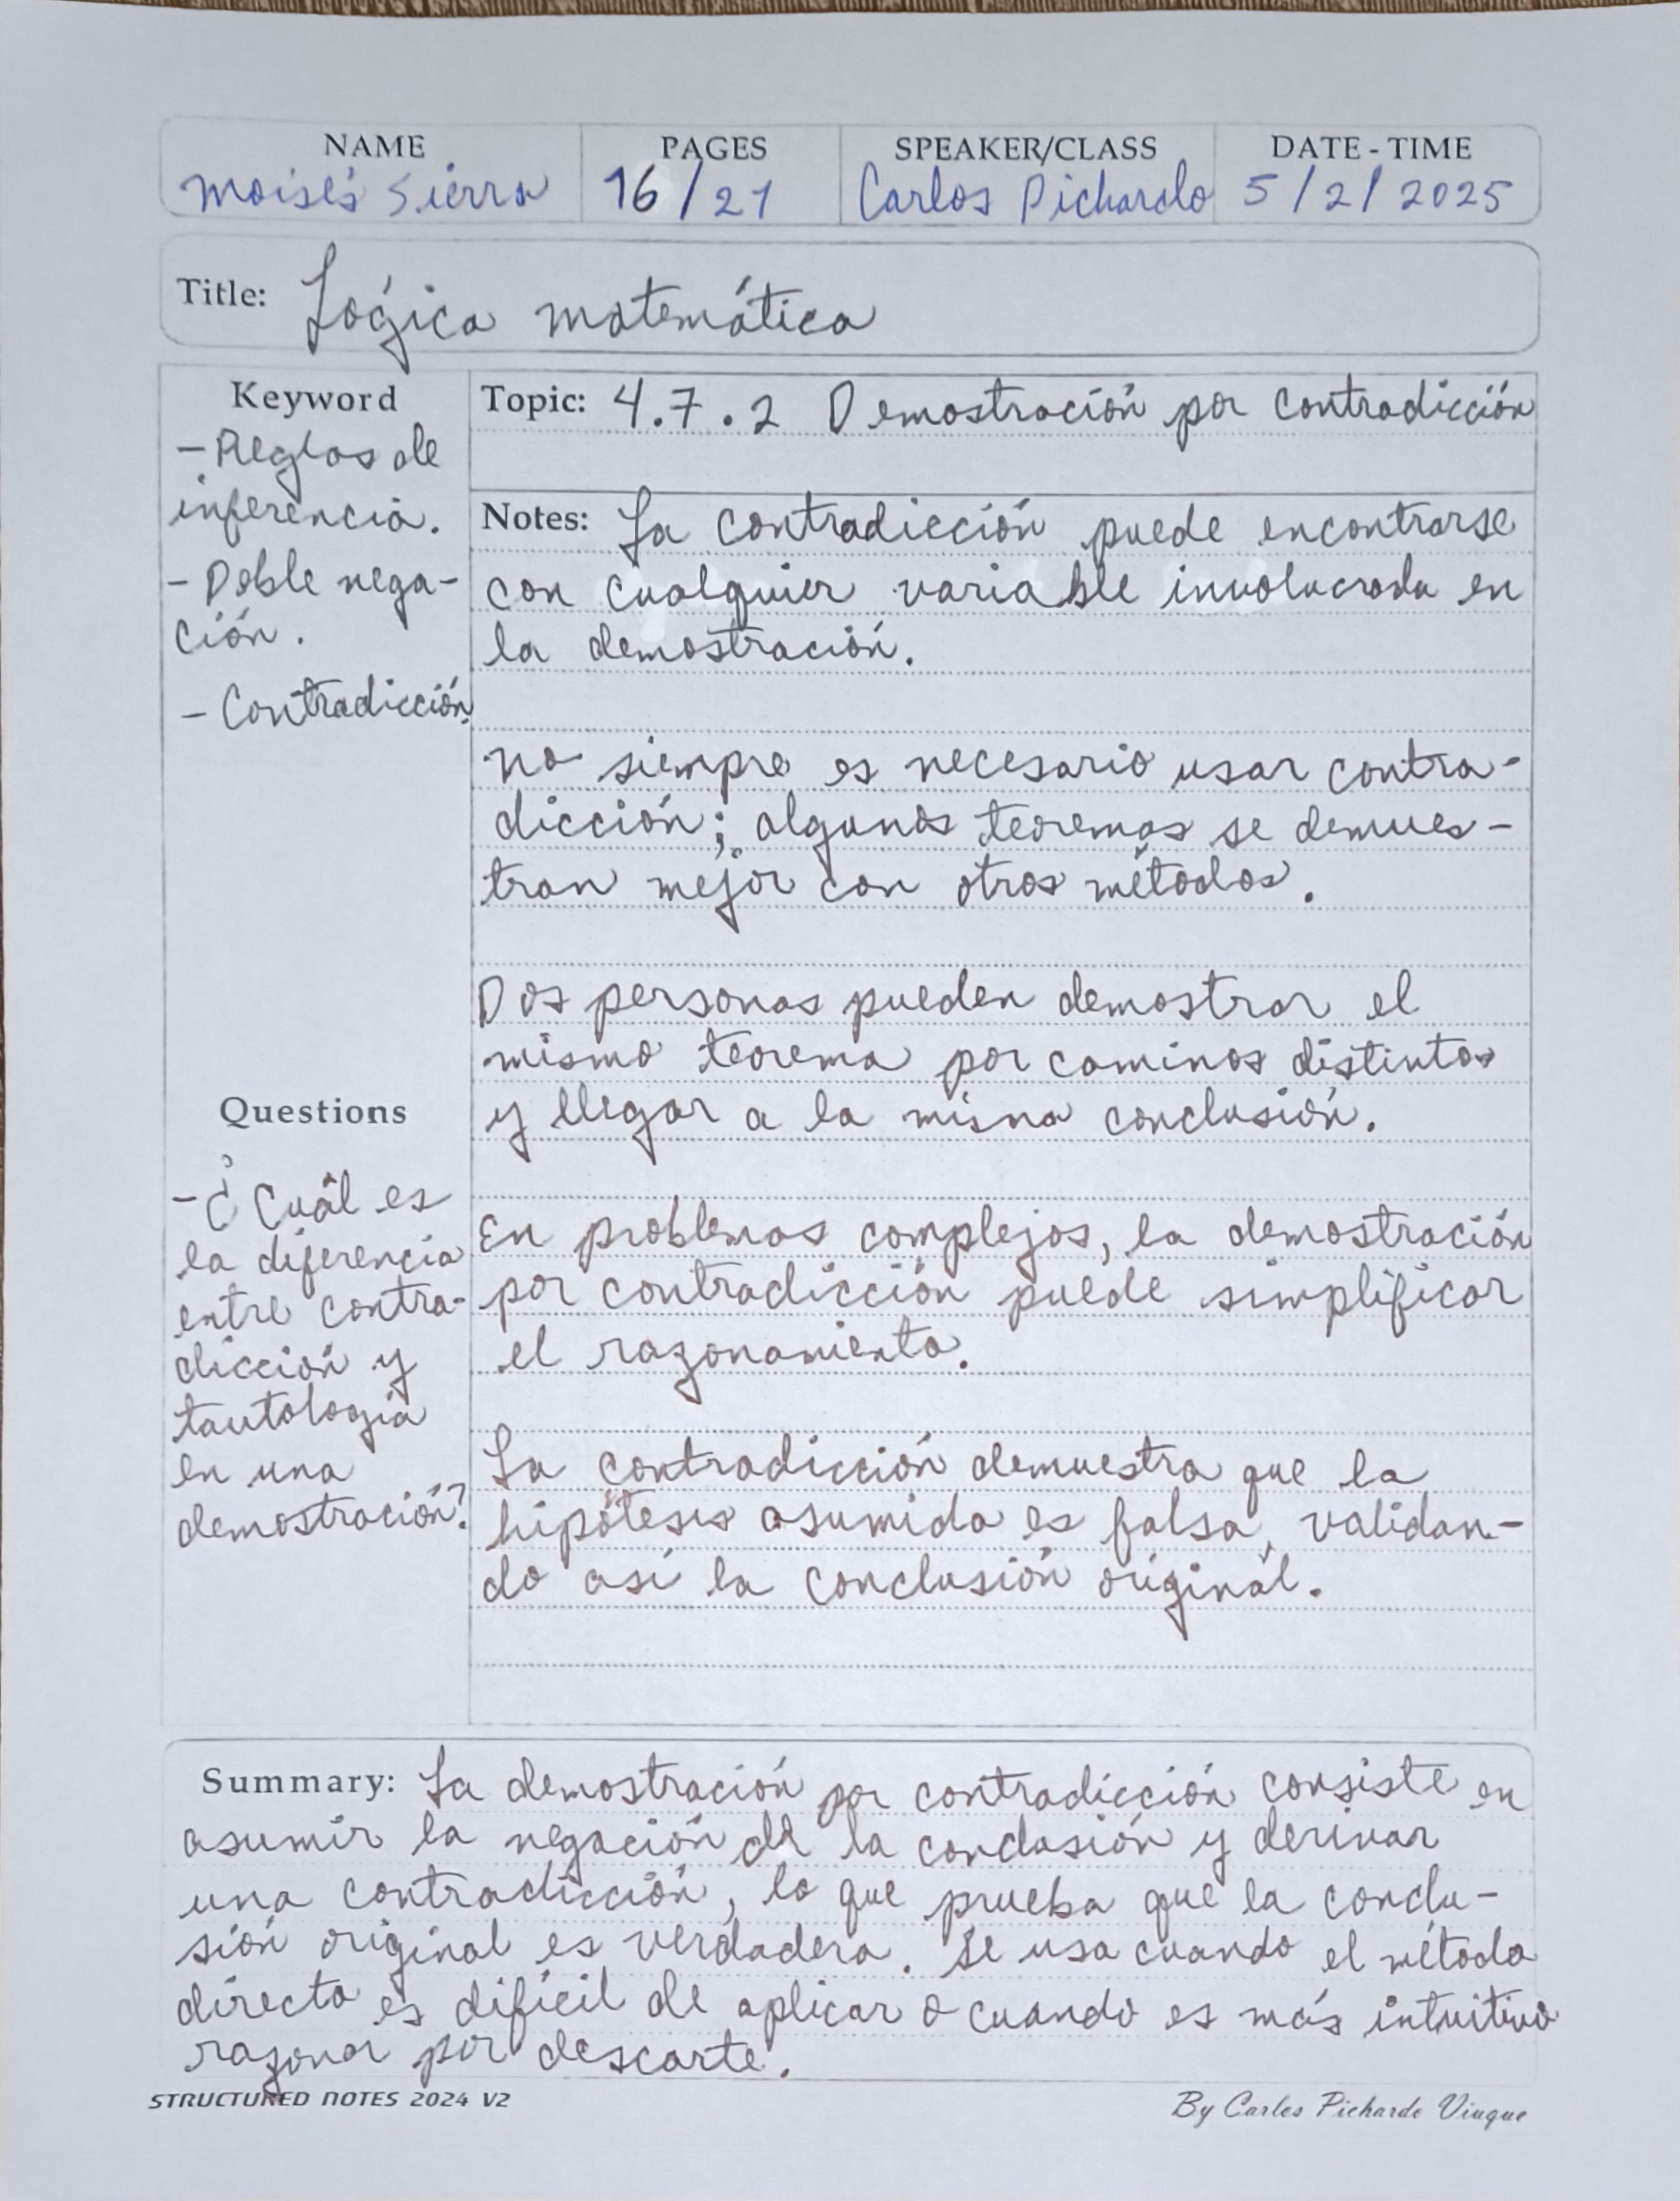 NAME PAGES SPEAKER/CLASS DATE - TIME
Moisés Sierra 16/21 Carlos Pichardo 5/2/2025
Title: Lógica matemática
Keyword
- Reglas de
inferencia.
- Doble nega-
ción.
- Contradicción.
Questions
- ¿Cuál es
la diferencia
entre contra-
dicción y
tautología
en una
demostración?
Topic: 4.7.2 Demostración por contradicción
Notes: La contradicción puede encontrarse
con cualquier variable involucrada en
la demostración.
no siempre es necesario usar contra-
dicción; algunos teoremas se demues-
tran mejor con otros métodos.
Dos personas pueden demostrar el
mismo teorema por caminos distintos
y llegar a la misma conclusión.
En problemas complejos, la demostración
por contradicción puede simplificar
el razonamiento.
La contradicción demuestra que la
hipótesis asumida es falsa, validan-
do así la conclusión original.
Summary: La demostración por contradicción consiste en
asumir la negación de la conclusión y derivar
una contradicción, lo que prueba que la conclu-
sión original es verdadera. Se usa cuando el método
directo es difícil de aplicar o cuando es más intuitivo
razonar por descarte.
STRUCTURED NOTES 2024 V2 By Carlos Pichardo Viuque